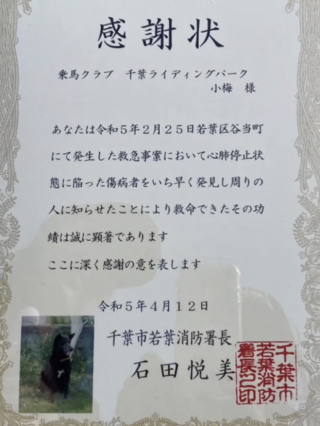 感謝状
乗馬クラブ 千葉ライディングパーク
小梅 様
あなたは令和5年2月25日若葉区谷当町
にて発生した救急事案において心肺停止状
態に陥った傷病者をいち早く発見し周りの
人に知らせたことにより救命できたその功
績は誠に顕著であります
ここに深く感謝の意を表します
令和5年4月12日
千葉市若葉消防署長
石田悦美
千葉市
若葉消防
署長之印